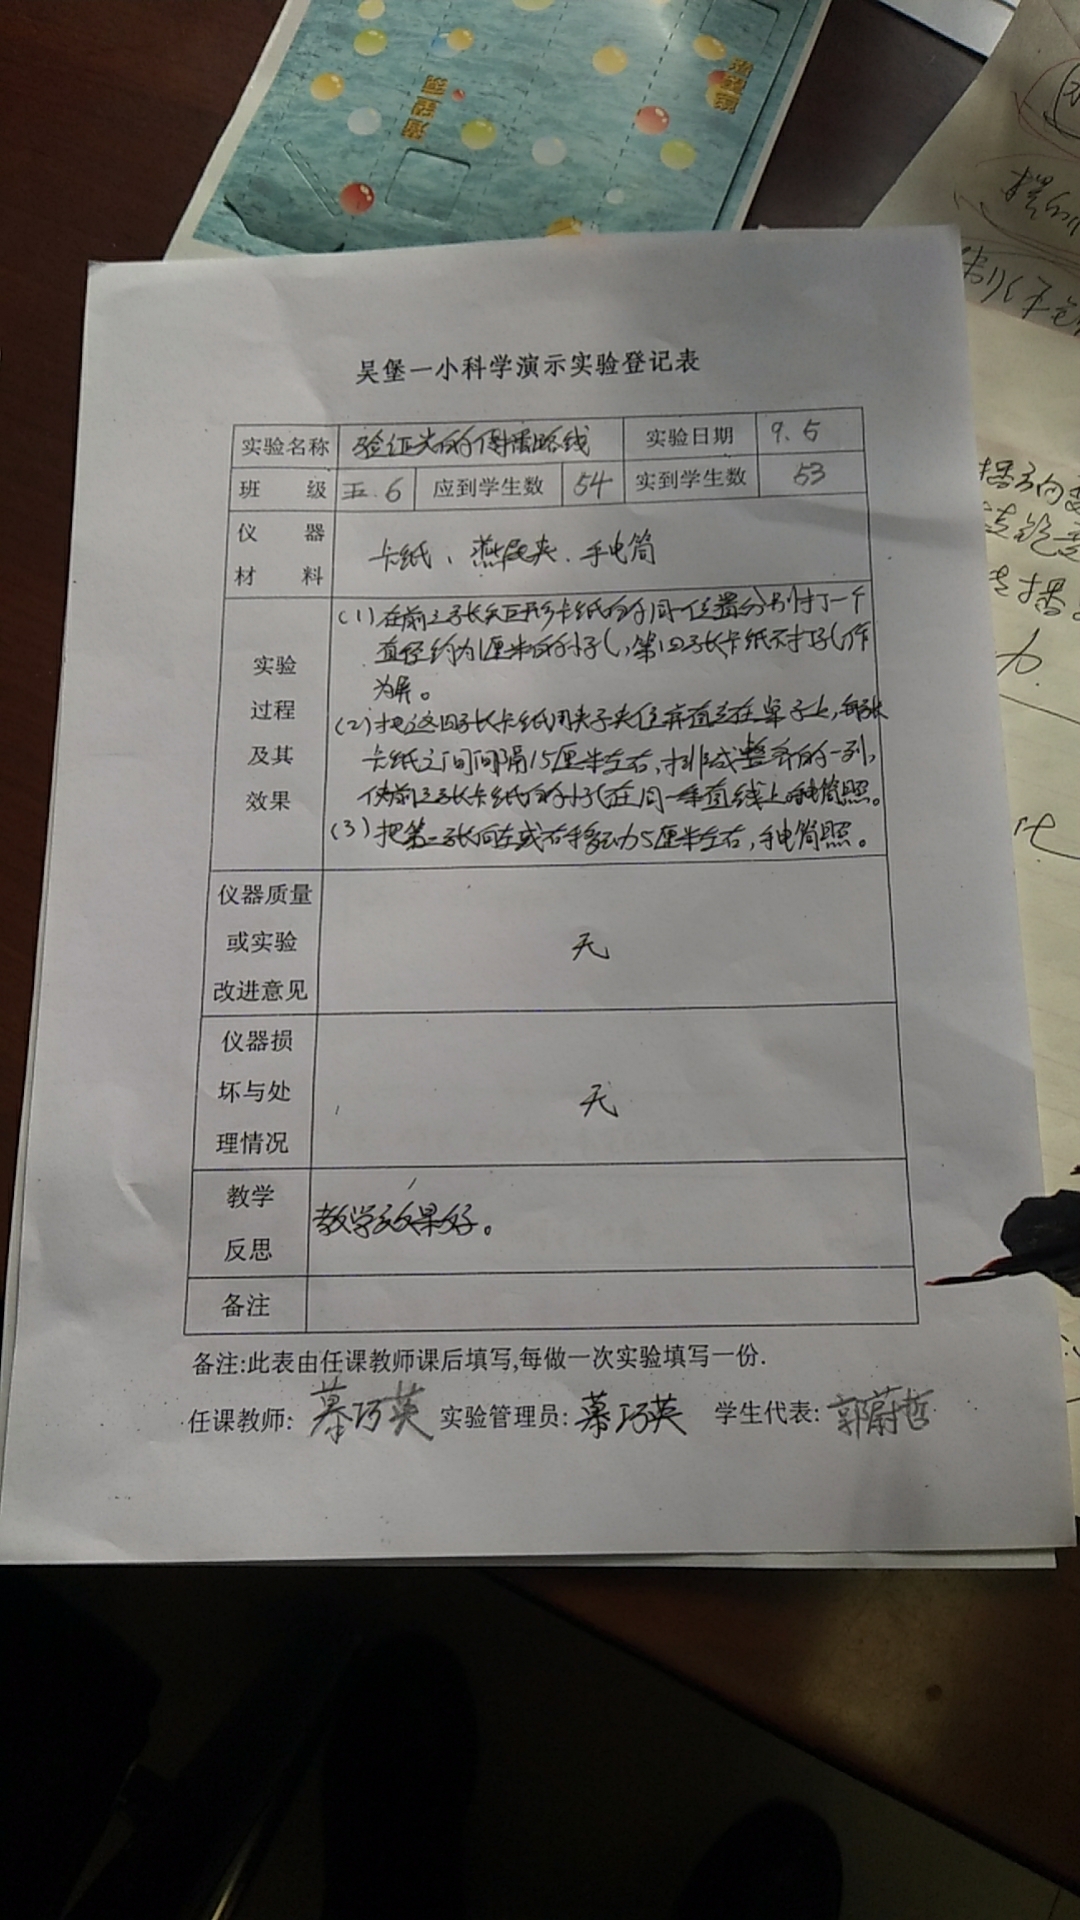 吴堡一小科学演示实验登记表
实验名称 验证光的传播路线 实验日期 9.5
班 级 五.6 应到学生数 54 实到学生数 53
仪 器
材 料
卡纸、燕尾夹、手电筒
实验
过程
及其
效果
(1)在前三张长方形卡纸的同一位置分别打一个
直径约为1厘米的小孔,第四张卡纸不打孔作
为屏。
(2)把这四张卡纸用夹子夹住并直立在桌子上,每张
卡纸之间间隔15厘米左右,排成整齐的一列,
使前三张卡纸的小孔在同一条直线上,手电筒照。
(3)把第二张向左或右移动5厘米左右,手电筒照。
仪器质量
或实验
改进意见
无
仪器损
坏与处
理情况
无
教学
反思
教学效果好。
备注
备注:此表由任课教师课后填写,每做一次实验填写一份.
任课教师: 慕巧英 实验管理员: 慕巧英 学生代表: 郭蔚哲